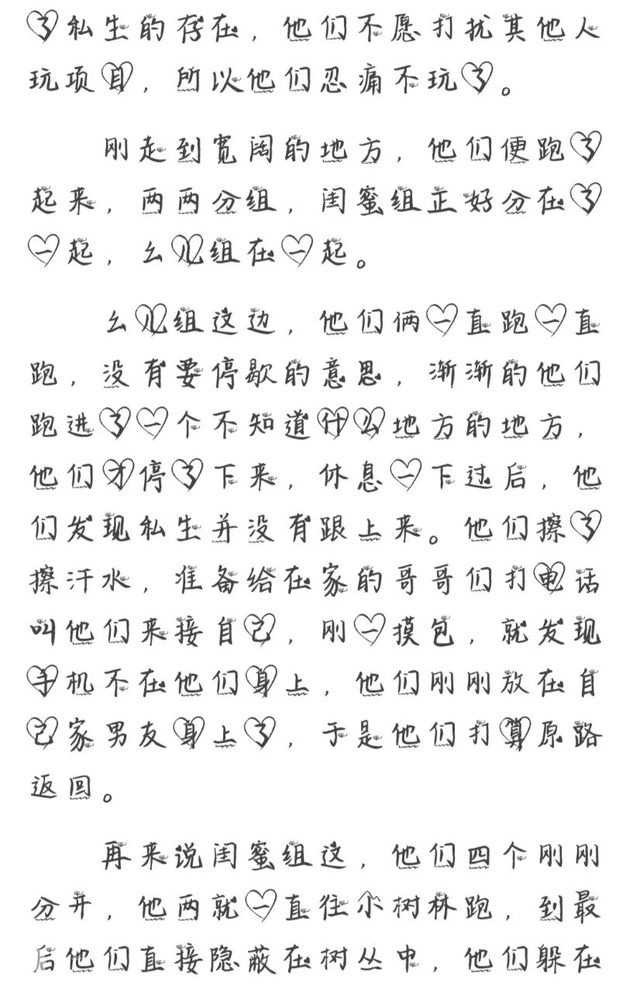 了私生的存在，他们不愿打扰其他人
玩项目，所以他们忍痛不玩了。
刚走到宽阔的地方，他们便跑了
起来，两两分组，闺蜜组正好分在了
一起，幺儿组在一起。
幺儿组这边，他们俩一直跑一直
跑，没有要停歇的意思，渐渐的他们
跑进了一个不知道什么地方的地方，
他们才停了下来，休息一下过后，他
们发现私生并没有跟上来。他们擦了
擦汗水，准备给在家的哥哥们打电话
叫他们来接自己，刚一摸包，就发现
手机不在他们身上，他们刚刚放在自
己家男友身上了，于是他们打算原路
返回。
再来说闺蜜组这，他们四个刚刚
分开，他两就一直往小树林跑，到最
后他们直接隐蔽在树丛中，他们躲在